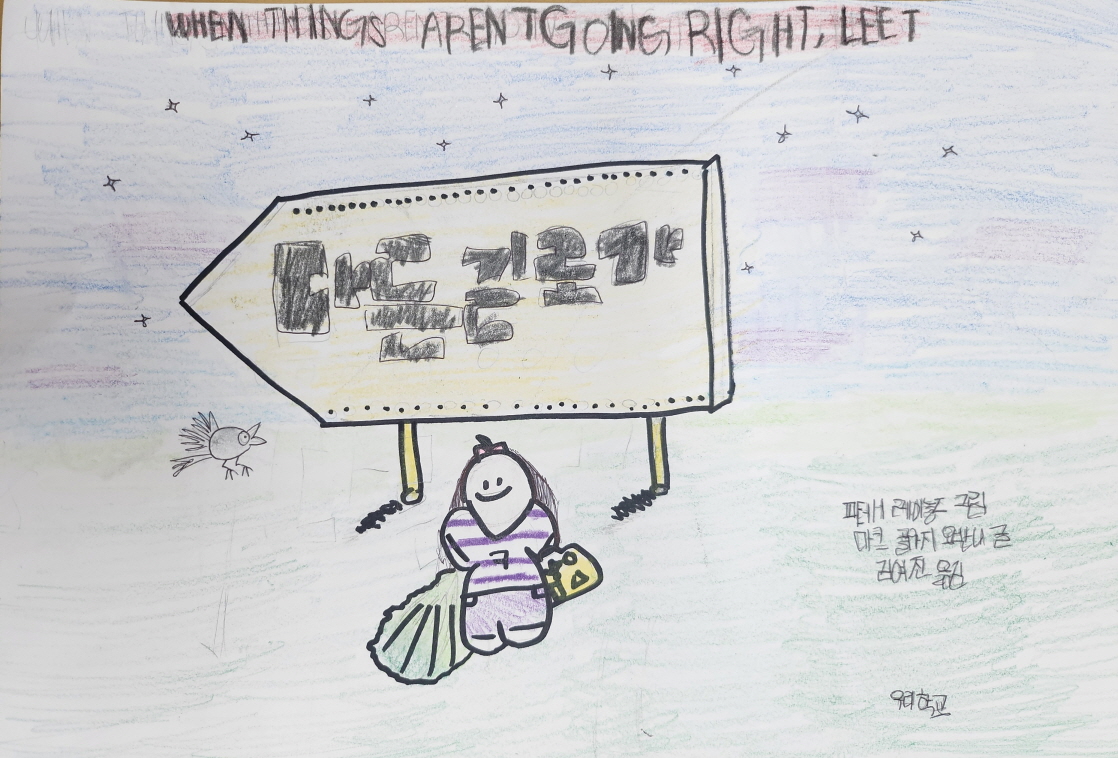 WHEN THINGS AREN TGOING RIGHT, LEET
다른 길로 가
피터 H 레이놀즈 그림
마크 콜라지오바니 글
김여진 옮김
우리학교